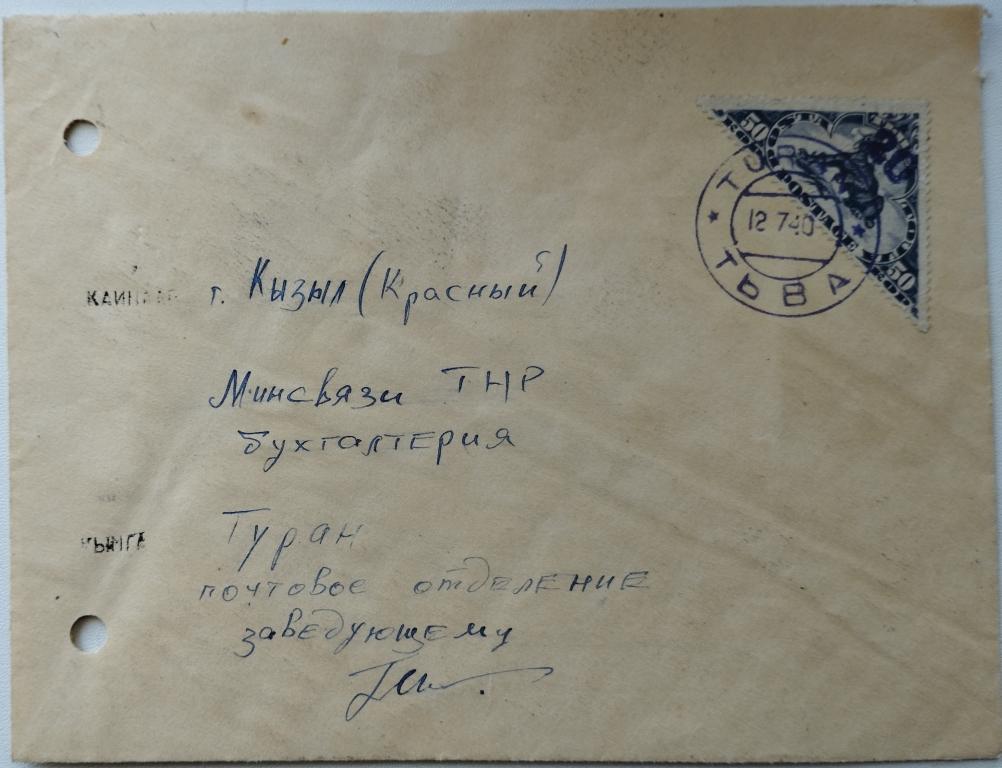 50
POSTAGE
50
20
TURAN
12 7.40
ТЬВА
г. Кызыл (Красный)
Минсвязи ТНР
бухгалтерия
Туран
почтовое отделение
заведующему